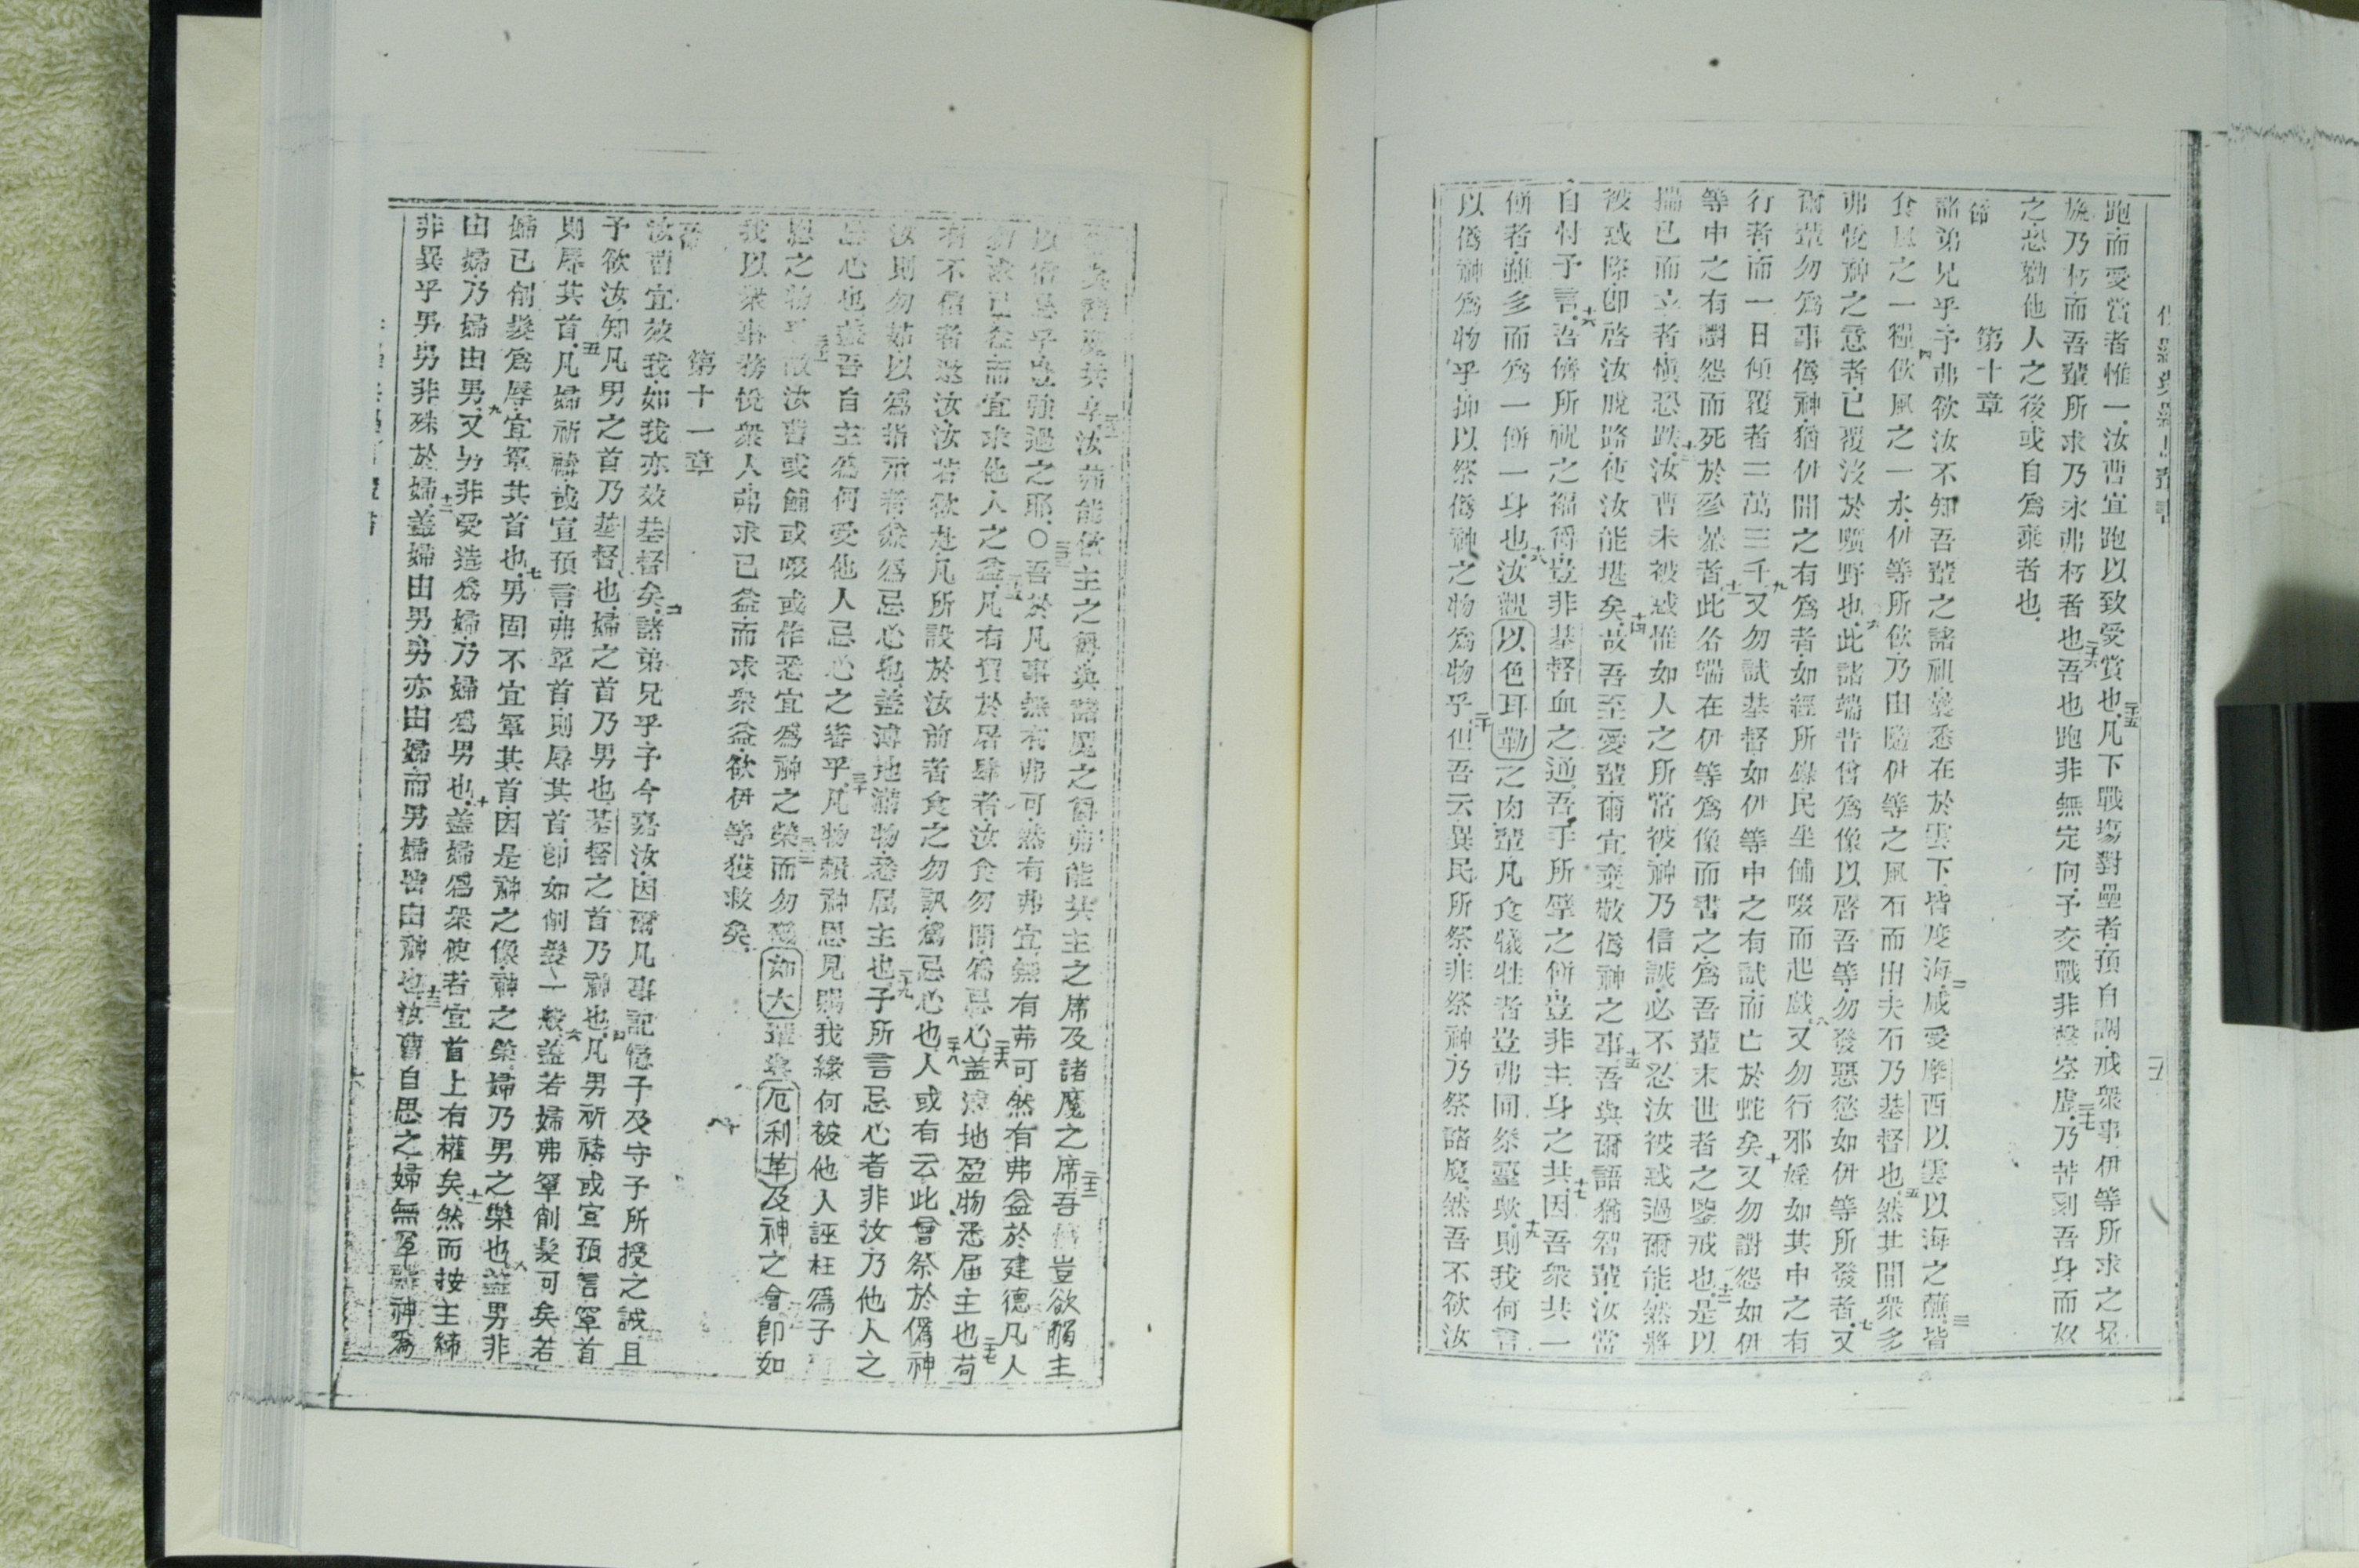 跑而受賞者惟一汝曹宜跑以致受賞也二十五凡下戰塲對壘者預自調戒衆事伊等所求之冕
旒乃朽而吾輩所求乃永弗朽者也二十六吾也跑非無定向予交戰非擊空虛二十七乃苦剋吾身而奴
之恐勸他人之後或自爲棄者也
第十章
節諸弟兄乎予弗欲汝不知吾輩之諸祖曩悉在於雲下皆度海二咸受摩西以雲以海之蘸三皆
食屬之一糧四飲屬之一水伊等所飲乃由隨伊等之屬石而出夫石乃基督也五然其間衆多
弗悅神之意者已覆沒於曠野也六此諸端昔曾爲像以啓吾等勿發惡慾如伊所發者七又
爾輩勿爲事僞神猶伊間之有爲者如經所錄民坐餔啜而起戲八又勿行邪婬如其中之有
行者而一日傾覆者二萬三千九又勿試基督如伊等中之有試而亡於蛇矣十又勿讟怨如伊
等中之有讟怨而死於殄暴者十一此各端在伊等爲像而書之爲吾輩末世者之鑒戒也十二是以
揣已而立者慎恐跌十三汝曹未被惑惟如人之所常被神乃信誠必不忍汝被惑過爾能然將
被惑際卽啓汝脫路使汝能堪矣十四故吾至愛輩爾宜棄敬僞神之事十五吾與爾語猶智輩汝當
自忖予言十六吾儕所祝之福爵豈非基督血之通吾手所擘之餅豈非主身之共十七因吾衆共一
餅者雖多而爲一餅一身也十八汝觀以色耳勒之肉輩凡食犧牲者豈弗同祭臺歟十九則我何言
以僞神爲物乎抑以祭僞神之物爲物乎二十但吾云異民所祭非祭神乃祭諸魔然吾不欲汝
曹與諸魔共享二十一汝弗能飲主之爵與諸魔之爵弗能共主之席及諸魔之席二十二吾儕豈欲觸主
以倍忌乎豈強過之耶〇二十三吾於凡事無有弗可然有弗宜無有弗可然有弗益於建德凡人
勿求己益而宜求他人之益二十五凡有賣於屠肆者汝食勿問爲忌心二十六蓋滂地盈物悉届主也二十七苟
有不信者邀汝汝若欲赴凡所設於汝前者食之勿訊爲忌心也二十八人或有云此曾祭於僞神
汝則勿茹以爲指示者兼爲忌心也蓋溥地滿物悉屆主也二十九予所言忌心者非汝乃他人之
忌心也蓋吾自主爲何受他人忌心之審乎三十凡物賴神恩見賜我緣何被他人誣枉爲予
恩之物乎三十一故汝曹或餔或啜或作悉宜爲神之榮三十二而勿礙如大輩并厄利革及神之會卽如
我以衆事務悅衆人弗求己益而求衆益欲伊等獲救矣
第十一章
節汝曹宜效我如我亦效基督矣二諸弟兄乎予今嘉汝因爾凡事記憶予及守予所授之誡三且
予欲汝知凡男之首乃基督也婦之首乃男也基督之首乃神也四凡男祈禱或宣預言罩首
則辱其首五凡婦祈禱或宣預言弗罩首則辱其首卽如削髮一般六蓋若婦弗罩削髮可矣若
婦已削髮爲辱宜罩其首也七男固不宜罩其首因是神之像神之榮婦乃男之榮也八蓋男非
由婦乃婦由男九又男非受造爲婦乃婦爲男也十蓋婦爲衆使者宜首上有權矣十一然而按主締
非異乎男男非殊於婦十二蓋婦由男男亦由婦而男婦皆由神也十三汝曹自思之婦無罩禱神爲